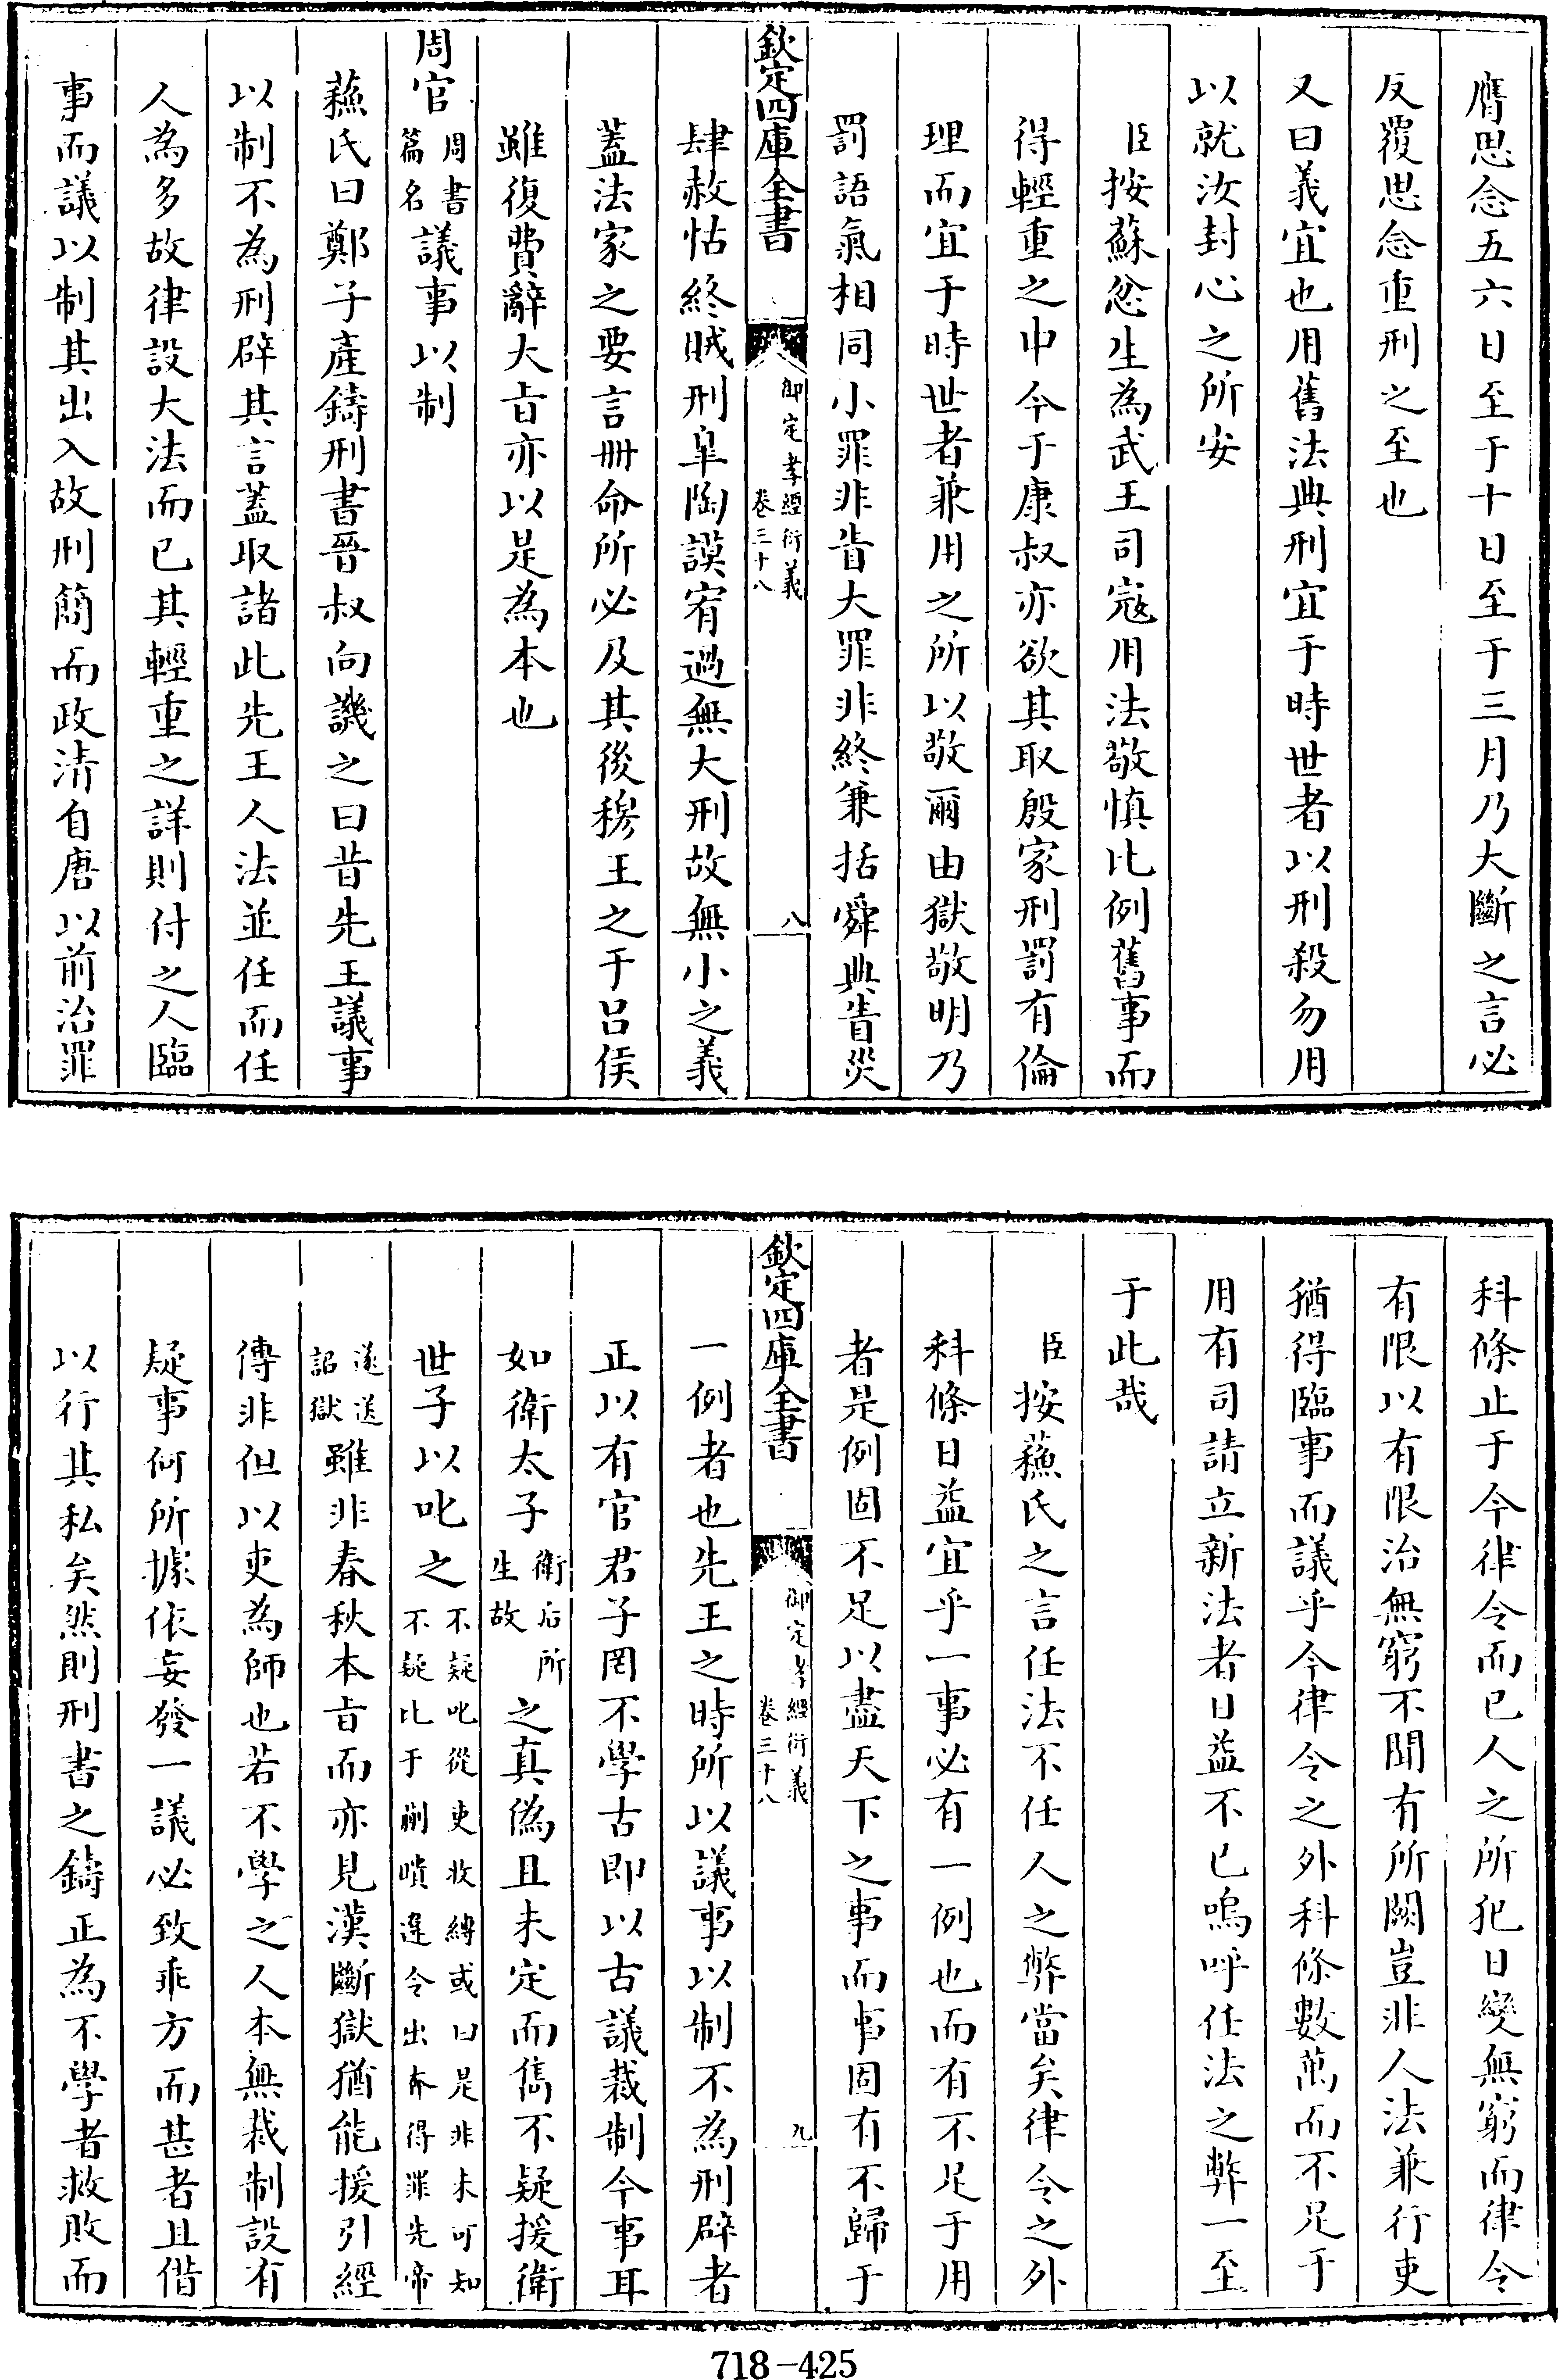 膺思念五六日至于十日至于三月乃大斷之言必
反覆思念重刑之至也
又曰義宜也用舊法典刑宜于時世者以刑殺勿用
以就汝封心之所安
臣按蘇忿生為武王司寇用法敬慎比例舊事而
得輕重之中今于康叔亦欲其取殷家刑罰有倫
理而宜于時世者兼用之所以敬爾由獄敬明乃
罰語氣相同小罪非眚大罪非終兼括舜典眚災
欽定四庫全書
御定孝經衍義
卷三十八
八
肆赦怙終賊刑皐陶謨宥過無大刑故無小之義
蓋法家之要言冊命所必及其後穆王之于呂侯
雖復費辭大旨亦以是為本也
周官周書篇名議事以制
蘓氏曰鄭子產鑄刑書晉叔向譏之曰昔先王議事
以制不為刑辟其言蓋取諸此先王人法並任而任
人為多故律設大法而已其輕重之詳則付之人臨
事而議以制其出入故刑簡而政清自唐以前治罪
科條止于今律令而已人之所犯日變無窮而律令
有限以有限治無窮不聞有所闕豈非人法兼行吏
猶得臨事而議乎今律令之外科條數萬而不足于
用有司請立新法者日益不已嗚呼任法之弊一至
于此哉
臣按蘓氏之言任法不任人之弊當矣律令之外
科條日益宜乎一事必有一例也而有不足于用
者是例固不足以盡天下之事而事固有不歸于
欽定四庫全書
御定孝經衍義
卷三十八
九
一例者也先王之時所以議事以制不為刑辟者
正以有官君子罔不學古即以古議裁制今事耳
如衛太子衛后所生故之真偽且未定而雋不疑援衛
世子以叱之不疑叱從吏收縛或曰是非未可知不疑比于蒯聵違令出奔得罪先帝
遂送詔獄雖非春秋本旨而亦見漢斷獄猶能援引經
傳非但以吏為師也若不學之人本無裁制設有
疑事何所據依妄發一議必致乖方而甚者且偕
以行其私矣然則刑書之鑄正為不學者救敗而
718-425